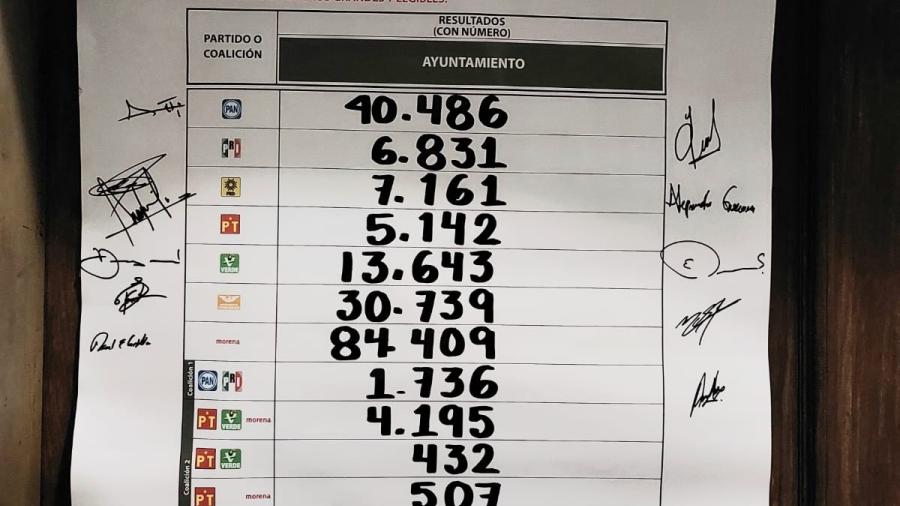 RESULTADOS
(CON NÚMERO)
PARTIDO O
COALICIÓN
AYUNTAMIENTO
PAN 40.486
PRD 6.831
PRD 7.161
PT 5.142
VERDE 13.643
30.739
morena 84.409
Coalición 1
PAN PRD 1.736
Coalición 2
PT VERDE morena 4.195
PT VERDE 432
PT morena 507